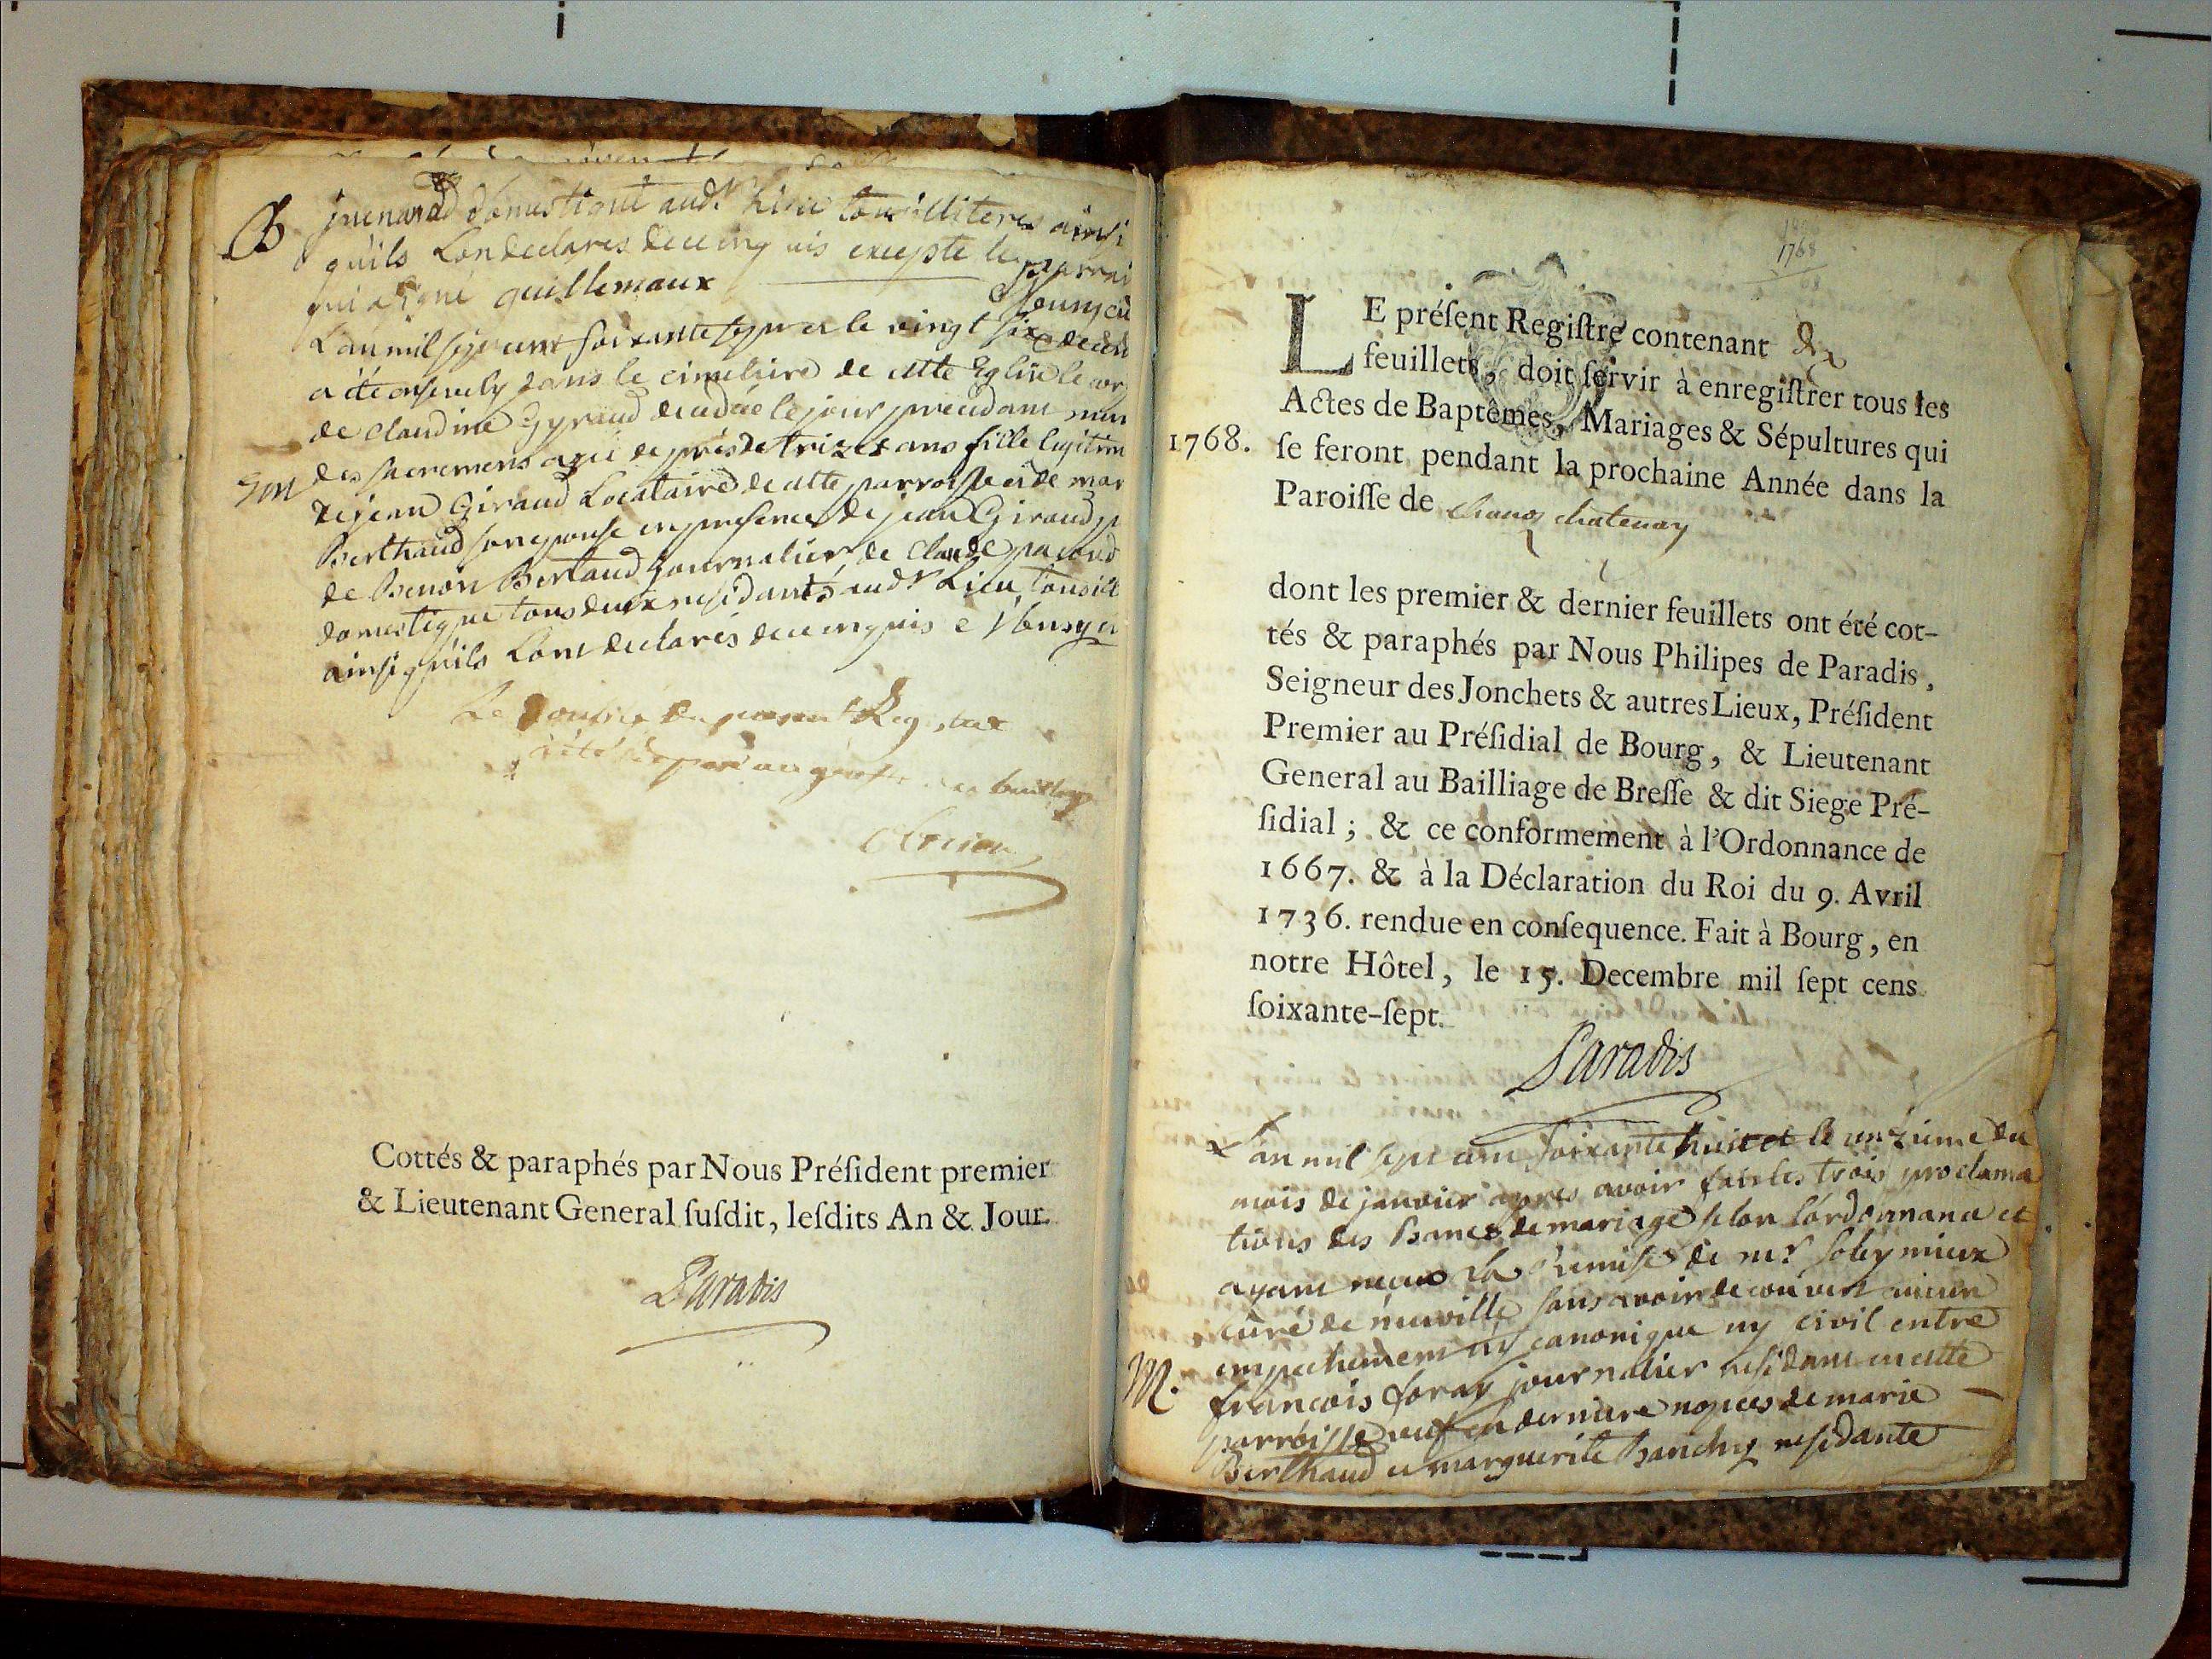 B
domestique aud.t Lieu tous illiteres ainsi
qu'ils Lon declares de ce enquis excepte le parrai
qui a signé guillemaux
L'an mil sept cent soixante sept et le vingt six decem
a été enseuely dans le cimetiere de cette Eglise le cor
de claudine Gyraud decedée le jour precedant mun
des sacremens agée de près de treize ans fille legitim
Sm
de jean Giraud Locataire de cette parroisse et de mar
Berthaud son epouse en presence de jean Giraud
de Benoit Bertaud journalier de claude
domestique tous deux residants aud.t Lieu tous ill
ainsi qu'ils Lont declarés de ce enquis
Le double du present Registre
a été déposé au greffe
Cottés & paraphés par Nous Préſident premier
& Lieutenant General ſuſdit, leſdits An & Jour.
Paradis
1768
LE préſent Regiſtre contenant dix
feuillets, doit ſervir à enregiſtrer tous les
Actes de Baptêmes, Mariages & Sépultures qui
1768. ſe feront pendant la prochaine Année dans la
Paroiſſe de chanoz chatenay
dont les premier & dernier feuillets ont été cot-
tés & paraphés par Nous Philipes de Paradis,
Seigneur des Jonchets & autres Lieux, Préſident
Premier au Préſidial de Bourg, & Lieutenant
General au Bailliage de Breſſe & dit Siege Pré-
ſidial ; & ce conformement à l'Ordonnance de
1667. & à la Déclaration du Roi du 9. Avril
1736. rendue en conſequence. Fait à Bourg, en
notre Hôtel, le 15. Decembre mil ſept cens
ſoixante-ſept.
Paradis
L'an mil sept cent soixante huit et le onzieme du
mois de janvier apres avoir fait les trois proclama
tions des bancs de mariage selon l'ordonnance et
ayant receu la remise de m.r soleymieux
curé de neuville sans avoir decouvert aucun
empechement ny canonique ny civil entre
M.
francois foray journalier residant en cette
parroisse veuf en derniere nopces de marie
Berthaud et marguerite residante